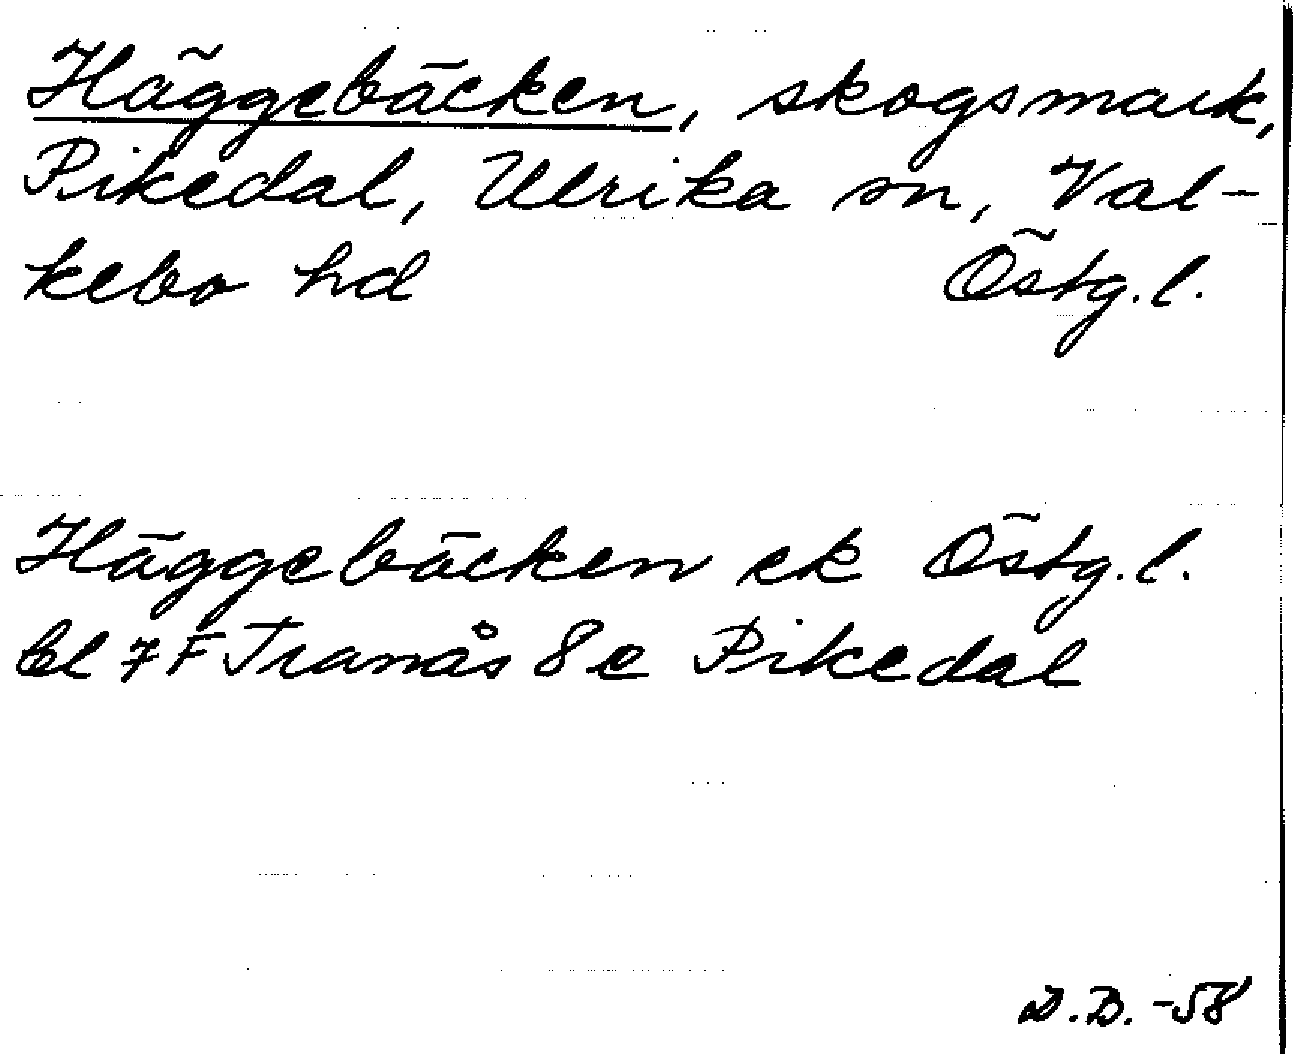 Häggebäcken, skogsmark,
Pikedal, Ulrika sn, Val-
kebo hd Östg.l.
Häggebäcken ek Östg.l.
bl 7F Tranås 8e Pikedal
D.B. -58